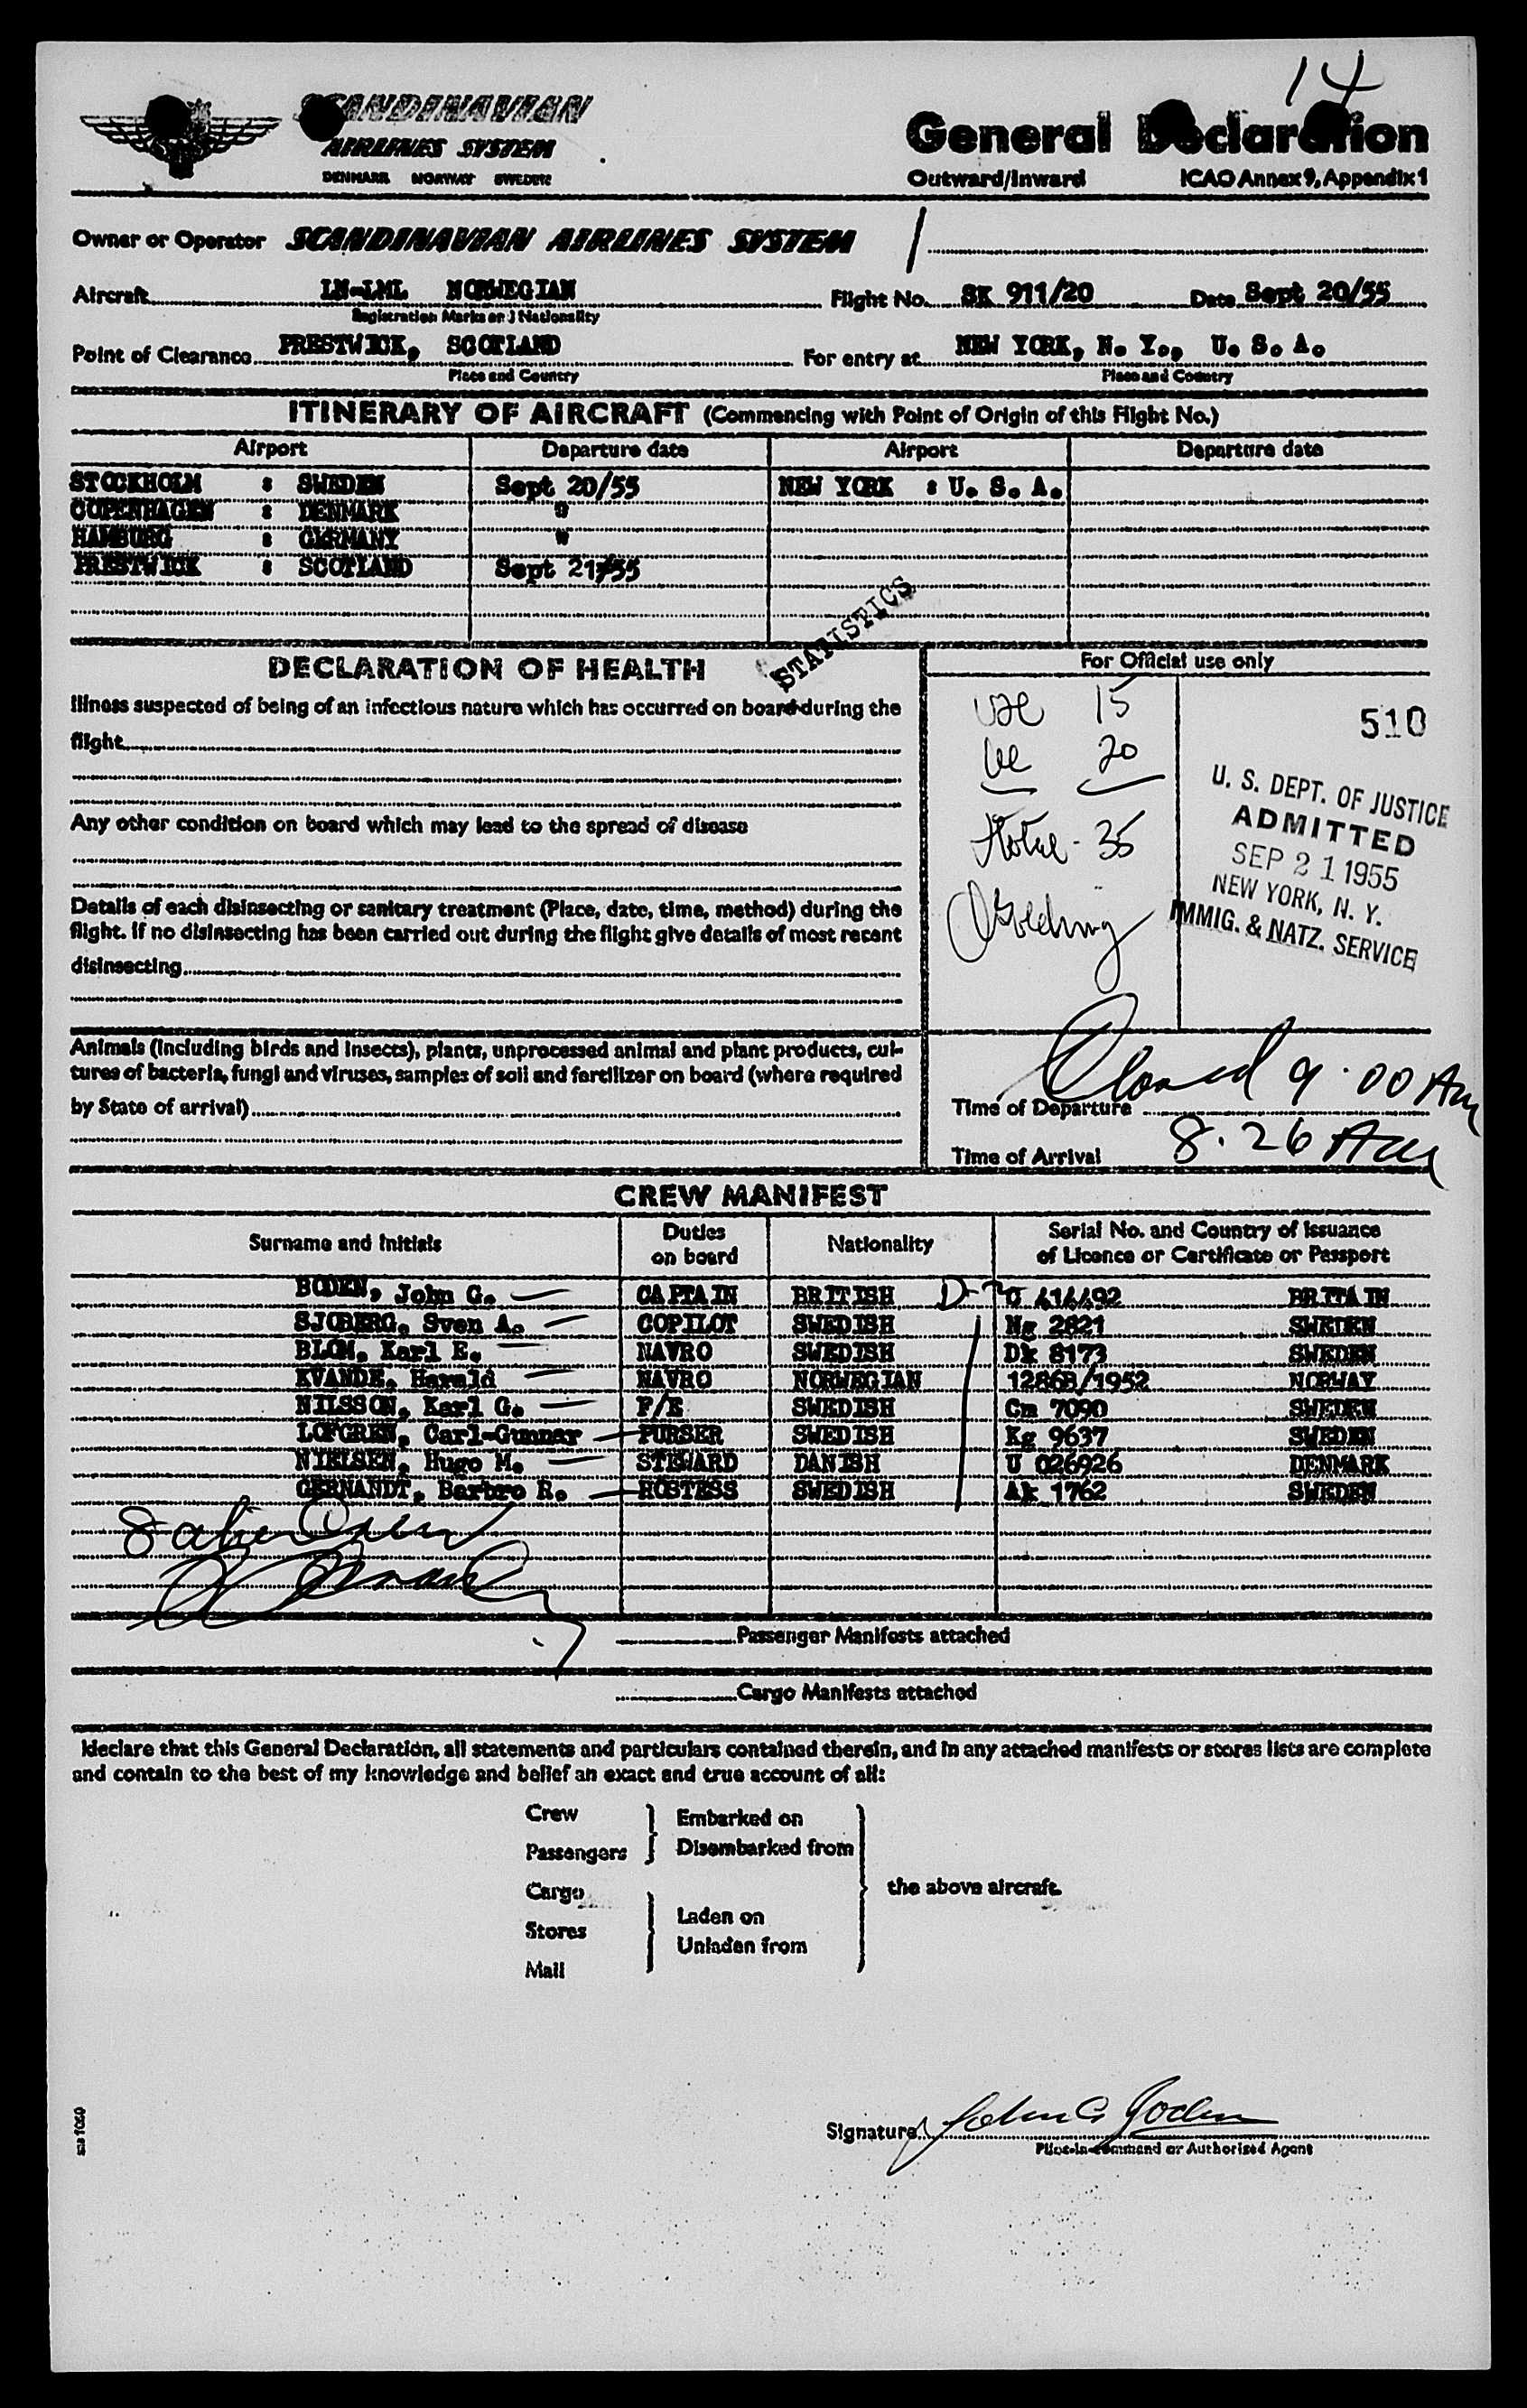 14
SCANDINAVIAN
AIRLINES SYSTEM
DENMARK NORWAY SWEDEN
General Declaration
Outward/Inward ICAO Annex 9, Appendix 1
Owner or Operator SCANDINAVIAN AIRLINES SYSTEM
Aircraft LN-LML NORWEGIAN Flight No. SK 911/20 Date Sept 20/55
Registration Marks and Nationality
Point of Clearance PRESTWICK, SCOTLAND For entry at NEW YORK, N. Y., U. S. A.
Place and Country Place and Country
ITINERARY OF AIRCRAFT (Commencing with Point of Origin of this Flight No.)
Airport Departure date Airport Departure date
STOCKHOLM : SWEDEN Sept 20/55 NEW YORK : U. S. A.
COPENHAGEN : DENMARK "
HAMBURG : GERMANY "
PRESTWICK : SCOTLAND Sept 21/55
STATISTICS
DECLARATION OF HEALTH
Illness suspected of being of an infectious nature which has occurred on board during the
flight
Any other condition on board which may lead to the spread of disease
Details of each disinsecting or sanitary treatment (Place, date, time, method) during the
flight. If no disinsecting has been carried out during the flight give details of most recent
disinsecting
Animals (including birds and insects), plants, unprocessed animal and plant products, cul-
tures of bacteria, fungi and viruses, samples of soil and fertilizer on board (where required
by State of arrival)
For Official use only
15
20
Total - 35
510
U. S. DEPT. OF JUSTICE
ADMITTED
SEP 21 1955
NEW YORK, N. Y.
IMMIG. & NATZ. SERVICE
Closed 9.00 Am
Time of Departure
Time of Arrival 8.26 Am
CREW MANIFEST
Surname and Initials Duties on board Nationality Serial No. and Country of Issuance of Licence or Certificate or Passport
BODEN, John G. CAPTAIN BRITISH D-2 O 414492 BRITAIN
SJOBERG, Sven A. COPILOT SWEDISH Ng 2821 SWEDEN
BLOM, Karl E. NAVRO SWEDISH Dk 8173 SWEDEN
KVANDE, Harald NAVRO NORWEGIAN 12868/1952 NORWAY
NILSSON, Karl G. F/E SWEDISH Cm 7090 SWEDEN
LOFGREN, Carl-Gunnar PURSER SWEDISH Kg 9637 SWEDEN
NIELSEN, Hugo M. STEWARD DANISH U 026926 DENMARK
GERNANDT, Barbro R. HOSTESS SWEDISH Ak 1762 SWEDEN
8 alien Crew
Passenger Manifests attached
Cargo Manifests attached
I declare that this General Declaration, all statements and particulars contained therein, and in any attached manifests or stores lists are complete
and contain to the best of my knowledge and belief an exact and true account of all:
Crew
Passengers
Embarked on
Disembarked from
Cargo
Stores
Mail
Laden on
Unladen from
the above aircraft.
Signature John G Boden
Pilot-in-command or Authorised Agent